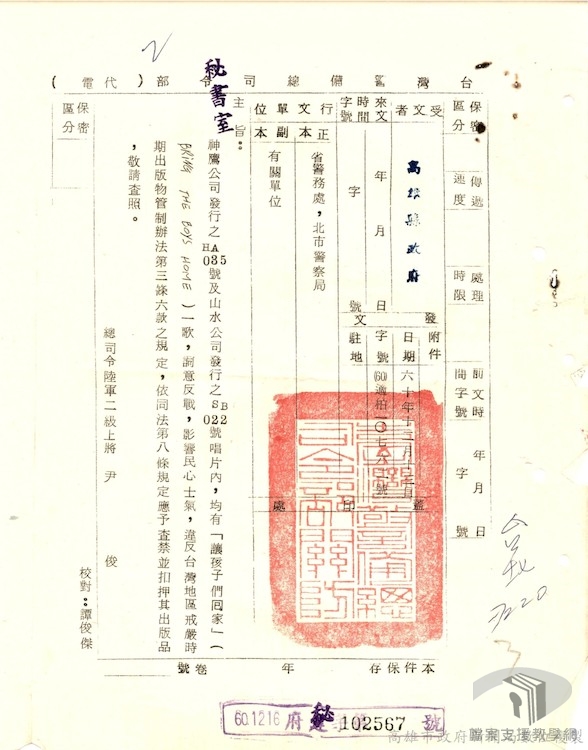 台灣警備總司令部(代電)
保密區分
傳遞速度
處理時限
前文時間字號
年月日
字號
受文者
高雄縣政府
發文
附件
日期
六十年十二月十三日
字號
駐地
蓋印處
來文
時間
字號
年月日
字號
行文單位
正本
省警務處,北市警察局
副本
有關單位
保密區分
秘書室
主旨:
神鷹公司發行之HA035號及山水公司發行之SB022號唱片內,均有「讓孩子們囘家」(
BRING THE BOYS HOME)一歌,詞意反戰,影響民心士氣,違反台灣地區戒嚴時
期出版物管制辦法第三條六款之規定,依同法第八條規定應予查禁並扣押其出版品
,敬請查照。
總司令陸軍二級上將 尹 俊
校對:譚俊傑
本件保存 年
卷號
60.12.16
府秘
102567號
檔案支援教學網